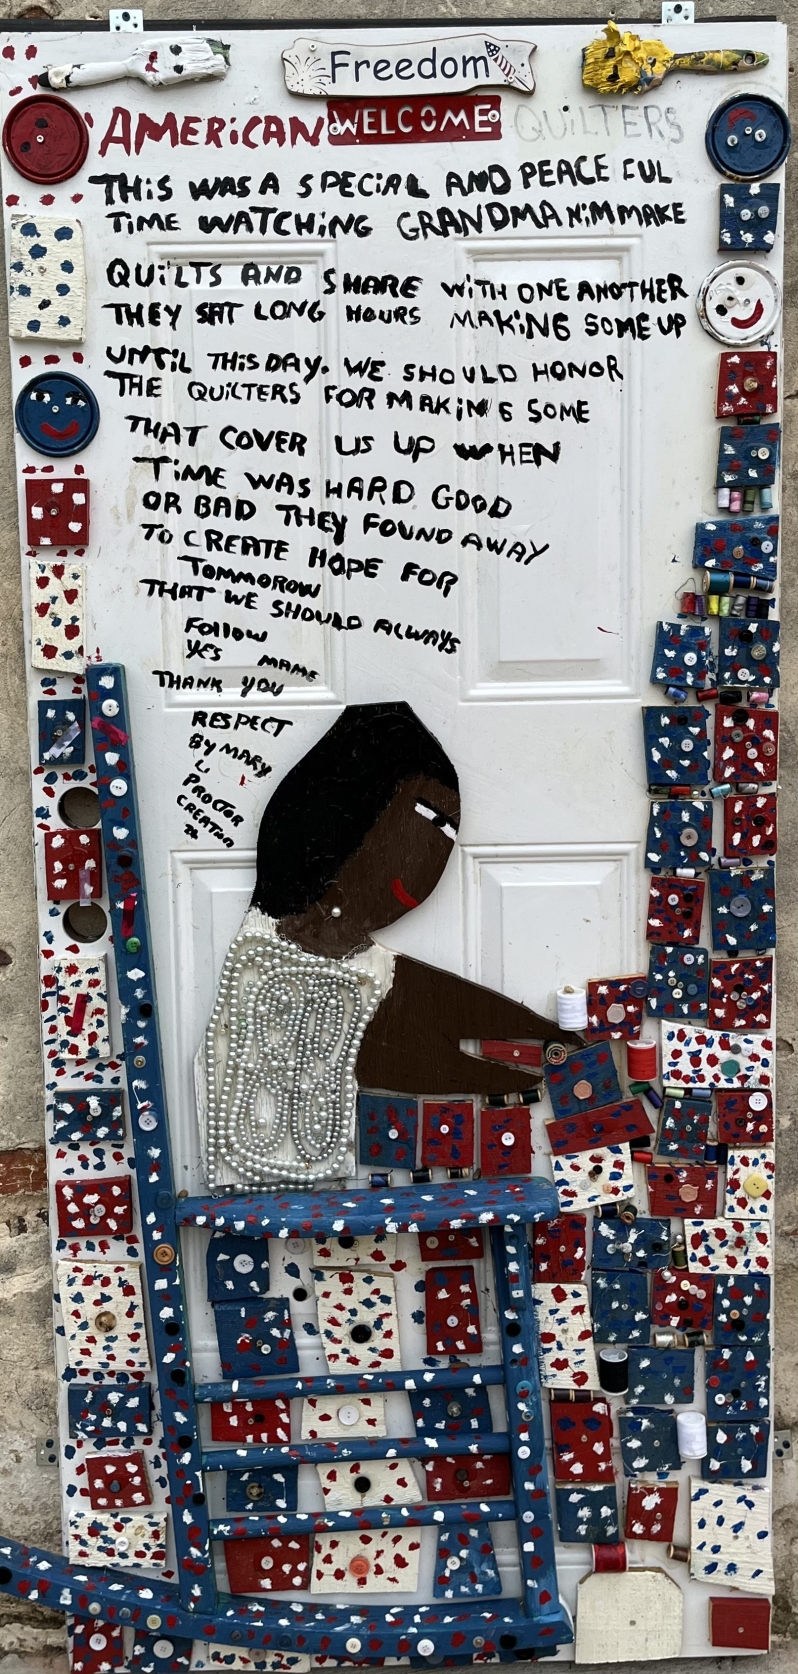 Freedom
AMERICAN WELCOME QUILTERS
THIS WAS A SPECIAL AND PEACE FUL
TIME WATCHING GRANDMA NIM MAKE
QUILTS AND SHARE WITH ONE ANOTHER
THEY SAT LONG HOURS MAKING SOME UP
UNTIL THIS DAY. WE SHOULD HONOR
THE QUILTERS FOR MAKING SOME
THAT COVER US UP WHEN
TIME WAS HARD GOOD
OR BAD THEY FOUND AWAY
TO CREATE HOPE FOR
TOMMOROW
THAT WE SHOULD ALWAYS
FOllOW
YES MAME
THANK YOU
RESPECT
BY MARY
L
PROCTOR